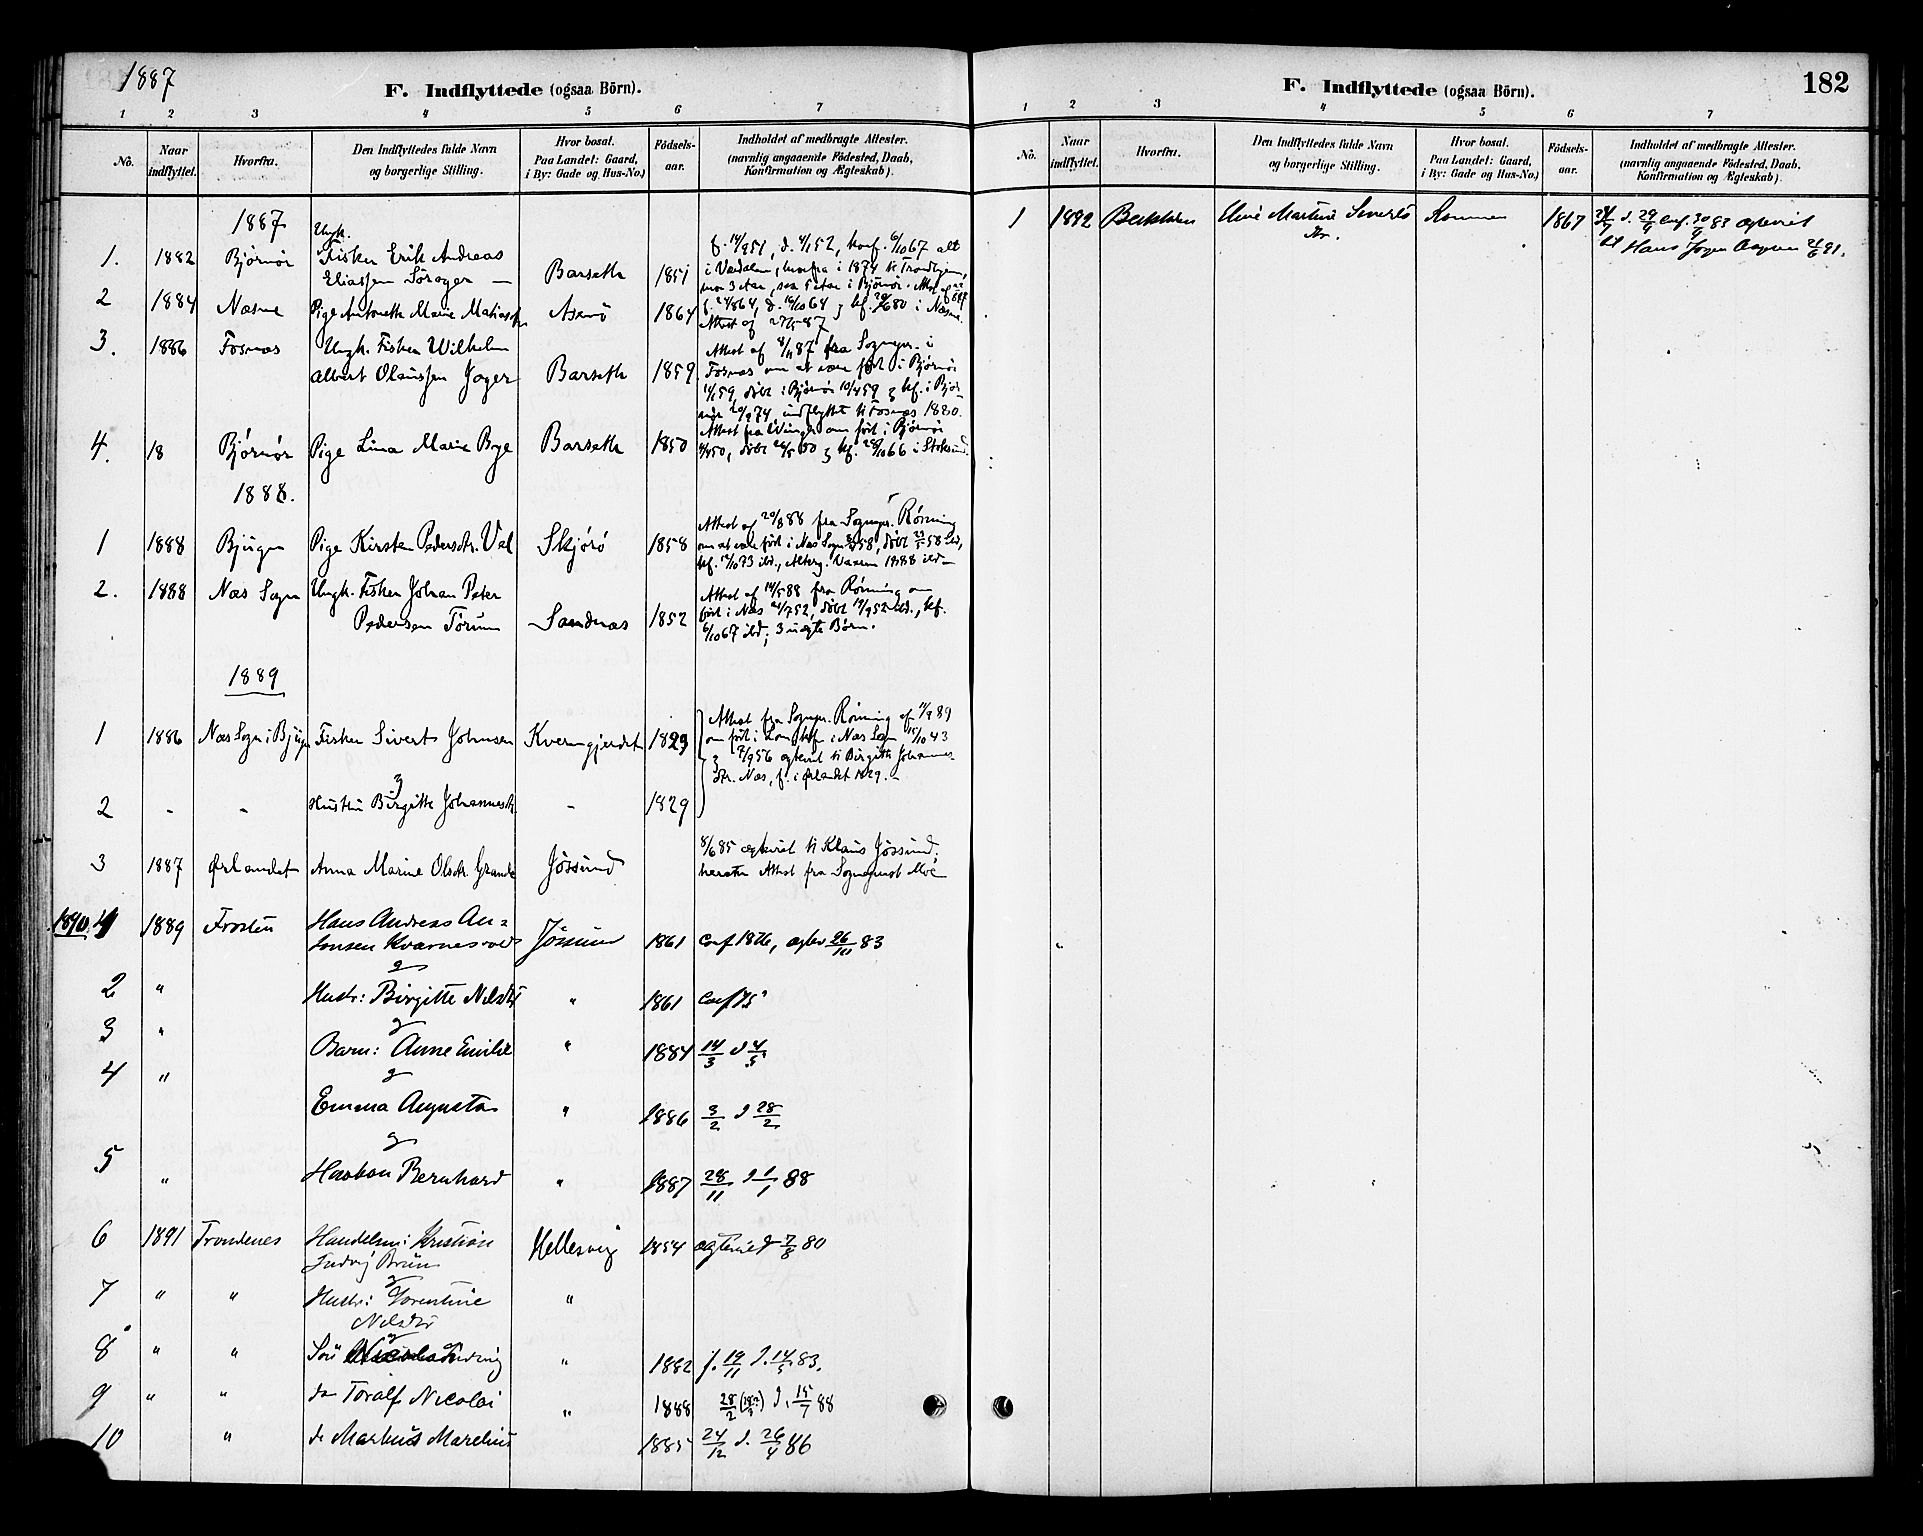 1887
F. Indflyttede (ogsaa Börn).
1 2 3 4 5 6 7
No.
Naar indflyttet.
Hvorfra.
Den Indflyttedes fulde Navn og borgerlige Stilling.
Hvor bosat. Paa Landet: Gaard, i By: Gade og Hus-No.)
Födsels-aar.
Indholdet af medbragte Attester. (navnlig angaaende Födested, Daab, Konfirmation og Ægteskab).
1887
Ungk.
1. 1882 Bjørnør Fisker Erik Andreas
Eliassen Sørager — Barseth 1851
f. 14/9 51, d. 4/1 52, konf. 6/10 67 alt
i Værdalen, herfra i 1874 til Trondhjem,
2 1884 Næsne Pige Antonette Marie Mathiasdtr Asenø 1864
f. 24/8 64, d. 16/10 64 g kf. 80 i Næsne.
Attest af 27/5 87
3. 1886 Fosnæs Ungk. Fisker Wilhelm
Albert Olaussen Jøger Barseth 1859
Attest af 8/11 87 fra Sognepr. i
Fosnæs om at være født i Bjørnør
59, døbt i Bjørnør 10/4 59 g kf. i Bjør-
nør 20/9 74, indflyttet til Fosnæs 1880.
4. 18 Bjørnør Pige Lina Marie Bye Barseth 1850
Attest fra Winge om født i Bjørnør
50, døbt 26/5 50 g kf. 28/10 66 i Stoksund.
1888.
1 1888 Bjugn Pige Kirsten Pedersdtr. Vel Skjørø 1858
Attest af 20/3 88 fra Sognepr. Rönning
om at være født i Næs Sogn 58, døbt 58 ibd,
kf. 12/10 73 ibd.,
2. 1888 Næs Sogn Ungk. Fisker Johan Peter
Pedersen Tørum Sandnæs 1852
Attest af 14/5 88 fra Rönning om
født i Næs 24/7 52, døbt 19/9 52 ibd., kf.
6/10 67 ibd; 3 uægte Børn.
1889
1 1886 Næs Sogn i Bjugn Fisker Sivert Johnsen Kverngjerdet 1829
g
Attest fra Sognepr. Rönning af 11/9 89
om født i kf. i Næs Sogn 15/10 43
g 7/9 56 ægteviet til Birgitte Johannes-
dtr. Næs, f. i Ørlandet 1829. —
2 - - Hustru Birgitte Johannesdtr - 1829
3 1887 Ørlandet Anna Marine Olsdtr. Grande Jøssund
8/6 85 ægteviet til Klaus Jøssund,
herom Attest fra Sogneprest Moe
1890. 1 1889 Frosten Hans Andreas An-
tonsen Kvarnesvold Jøssund 1861 Conf 1876, ægtev 26/11 83
g
2 " Hustr: Birgitte Nilsdtr " 1861 Conf 75
g
3 " Barn: Anne Emilie " 1884 14/3 d 4/5
g
4 " Emma Augusta " 1886 3/2 d 28/2
g
5 " Haakon Bernhard " 1887 28/11 d 1/1 88
6 1891 Trondenes Handelsm: Kristian
Ludvig Bruun Hellesvig 1854 ægteviet 7/8 80
g
7 " " Hustr: Torentine
Nilsdtr "
g
8 " " Søn Ludvig " 1882 f. 19/11 d. 14/5 83.
9 " " do Toralf Nicolai " 1888 28/2 d. 15/7 88
10 " do Markus Marelius 1885 24/12 d. 26/4 86
F. Indflyttede (ogsaa Börn).
182
1 2 3 4 5 6 7
No.
Naar indflyttet.
Hvorfra.
Den Indflyttedes fulde Navn og borgerlige Stilling.
Hvor bosat. Paa Landet: Gaard, i By: Gade og Hus-No.)
Födsels-aar.
Indholdet af medbragte Attester. (navnlig angaaende Födested, Daab, Konfirmation og Ægteskab).
1 1892 Martine Siverts
dtr. 1867 d. 29/9 Conf. 83 ægteviet
til Hans 91.